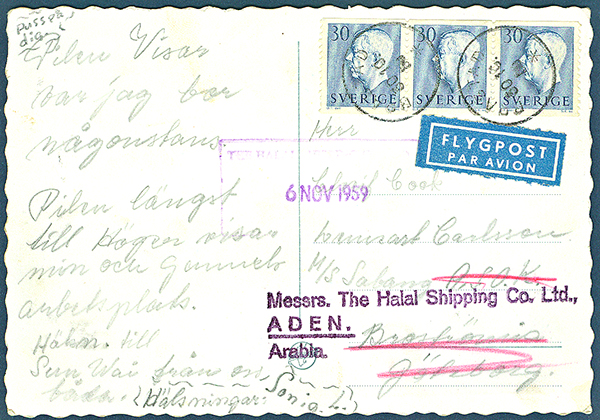 pussa på
dig
Pilen Visar
var jag bor
någonstans
Pilen längst
till Höger visar
min och Gunnels
arbetsplats.
Hälsn. till
Sun Wai från oss
båda. (Hälsningar: Sonia
30 30 30
SVERIGE SVERIGE SVERIGE
FLYGPOST
PAR AVION
6 NOV 1959
Herr
Cook
Lennart Carlsson
M/S Salana A.S.O.K.
Messrs. The Halal Shipping Co. Ltd.,
ADEN.
Arabia.
Broströmia
Göteborg.